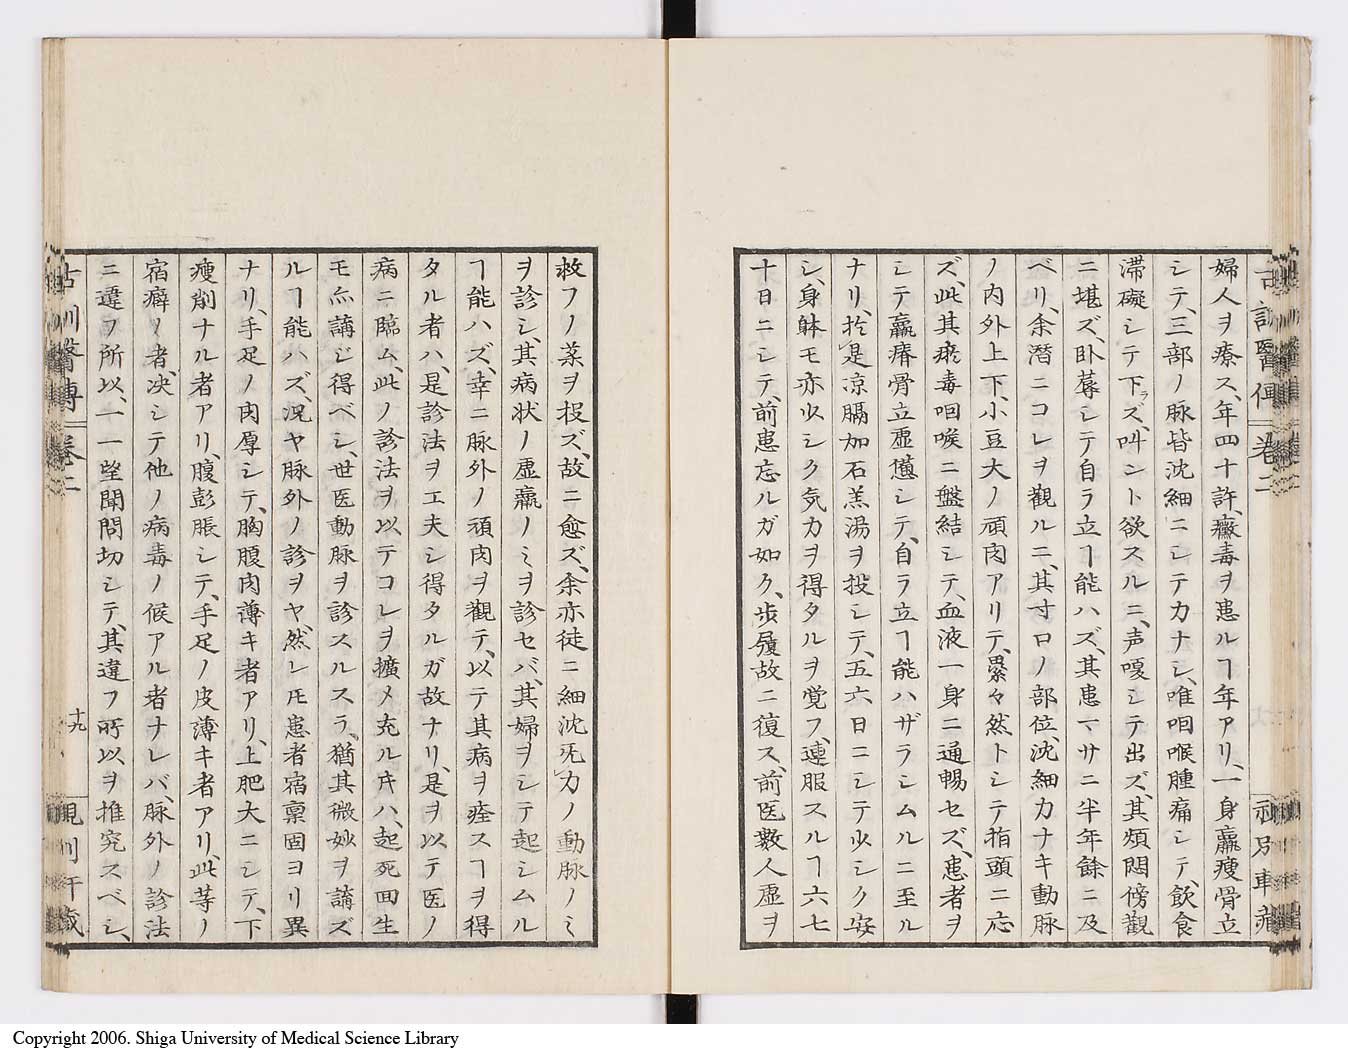 婦人ヲ療ス、年四十許、癥毒ヲ患ルヿ年アリ、一身羸瘦骨立
シテ、三部ノ脉皆沈細ニシテ力ナシ、唯咽喉腫痛シテ、飲食
滞礙シテ下ラズ、叫ント欲スルニ、声嗄シテ出ズ、其煩悶傍觀
ニ堪ズ、臥蓐シテ自ラ立ヿ能ハズ、其患マサニ半年餘ニ及
ベリ、余潜ニコレヲ觀ルニ、其寸口ノ部位、沈細力ナキ動脉
ノ内外上下、小豆大ノ頑肉アリテ、累々然トシテ指頭ニ応
ズ、此其瘀毒咽喉ニ盤結シテ、血液一身ニ通暢セズ、患者ヲ
シテ羸瘠骨立虚憊シテ、自ラ立ヿ能ハザラシムルニ至ル
ナリ、於是凉膈加石羔湯ヲ投シテ、五六日ニシテ少シク安
シ、身躰モ亦少シク気力ヲ得タルヲ覚フ、連服スルヿ六七
十日ニシテ、前患忘ルガ如ク、歩履故ニ復ス、前医數人虚ヲ
救フノ薬ヲ投ズ、故ニ愈ズ、余亦徒ニ細沈旡力ノ動脉ノミ
ヲ診シ、其病状ノ虚羸ノミヲ診セバ、其婦ヲシテ起シムル
ヿ能ハズ、幸ニ脉外ノ頑肉ヲ觀テ、以テ其病ヲ痊スヿヲ得
タル者ハ、是診法ヲ工夫シ得タルガ故ナリ、是ヲ以テ医ノ
病ニ臨ム、此ノ診法ヲ以テコレヲ擴メ充ル片ハ、起死回生
モ亦講ジ得ベシ、世医動脉ヲ診スルスラ、猶其微妙ヲ講ズ
ルヿ能ハズ、况ヤ脉外ノ診ヲヤ、然レ𪜈患者宿稟固ヨリ異
ナリ、手足ノ肉厚シテ、胸腹肉薄キ者アリ、上肥大ニシテ、下
瘦削ナル者アリ、腹彭脹シテ、手足ノ皮薄キ者アリ、此等ノ
宿癖ノ者、决シテ他ノ病毒ノ候アル者ナレバ、脉外ノ診法
ニ違フ所以、一一望聞問切シテ、其違フ所以ヲ推究スベシ、
古訓醫傳 卷二
十九
Copyright 2006. Shiga University of Medical Science Library